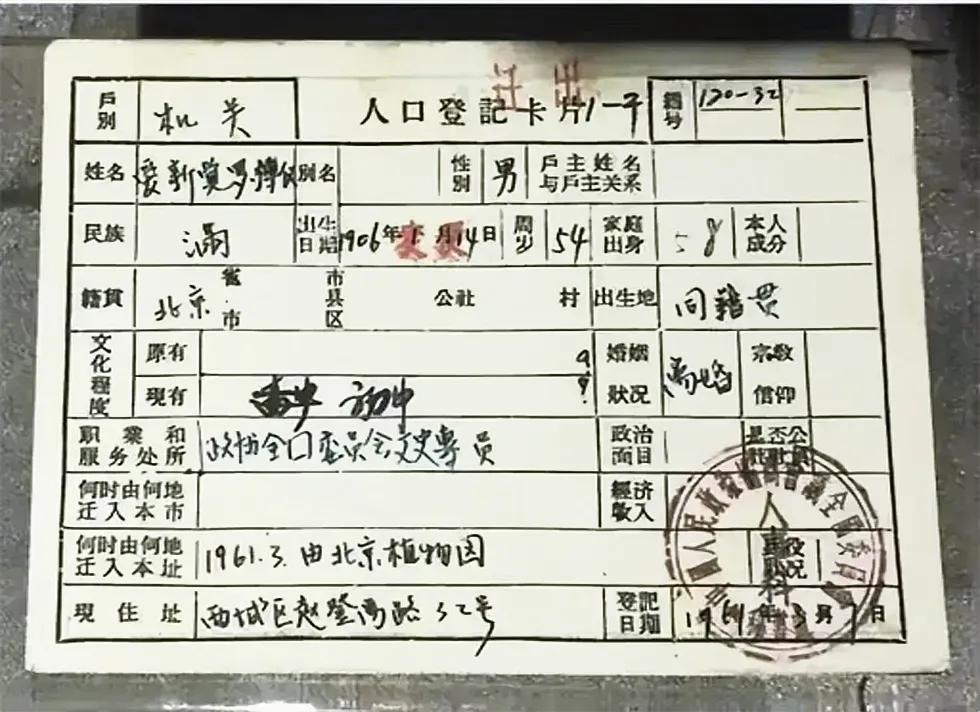 迁出
戶別 机关 人口登記卡片 1-子 編号 120-32
姓名 爱新覺罗 別名 性別 男 戶主姓名与戶主关系
民族 滿 出生日期 1906年 月14日 周岁 54 家庭出身 本人成分
籍貫 北京 省市 市县区 公社 村 出生地 同籍贯
文化程度 原有 婚姻狀况 离婚 宗敎信仰
現有 高中 初中
职業和服务处所 政协全囗委员会文史專員 政治面目 是否公社社員
何时由何地迁入本市 經济收入
何时由何地迁入本址 1961.3.由北京植物园
現住址 西城区赵登禹路32号 登記日期 1961年3月7日
人事科